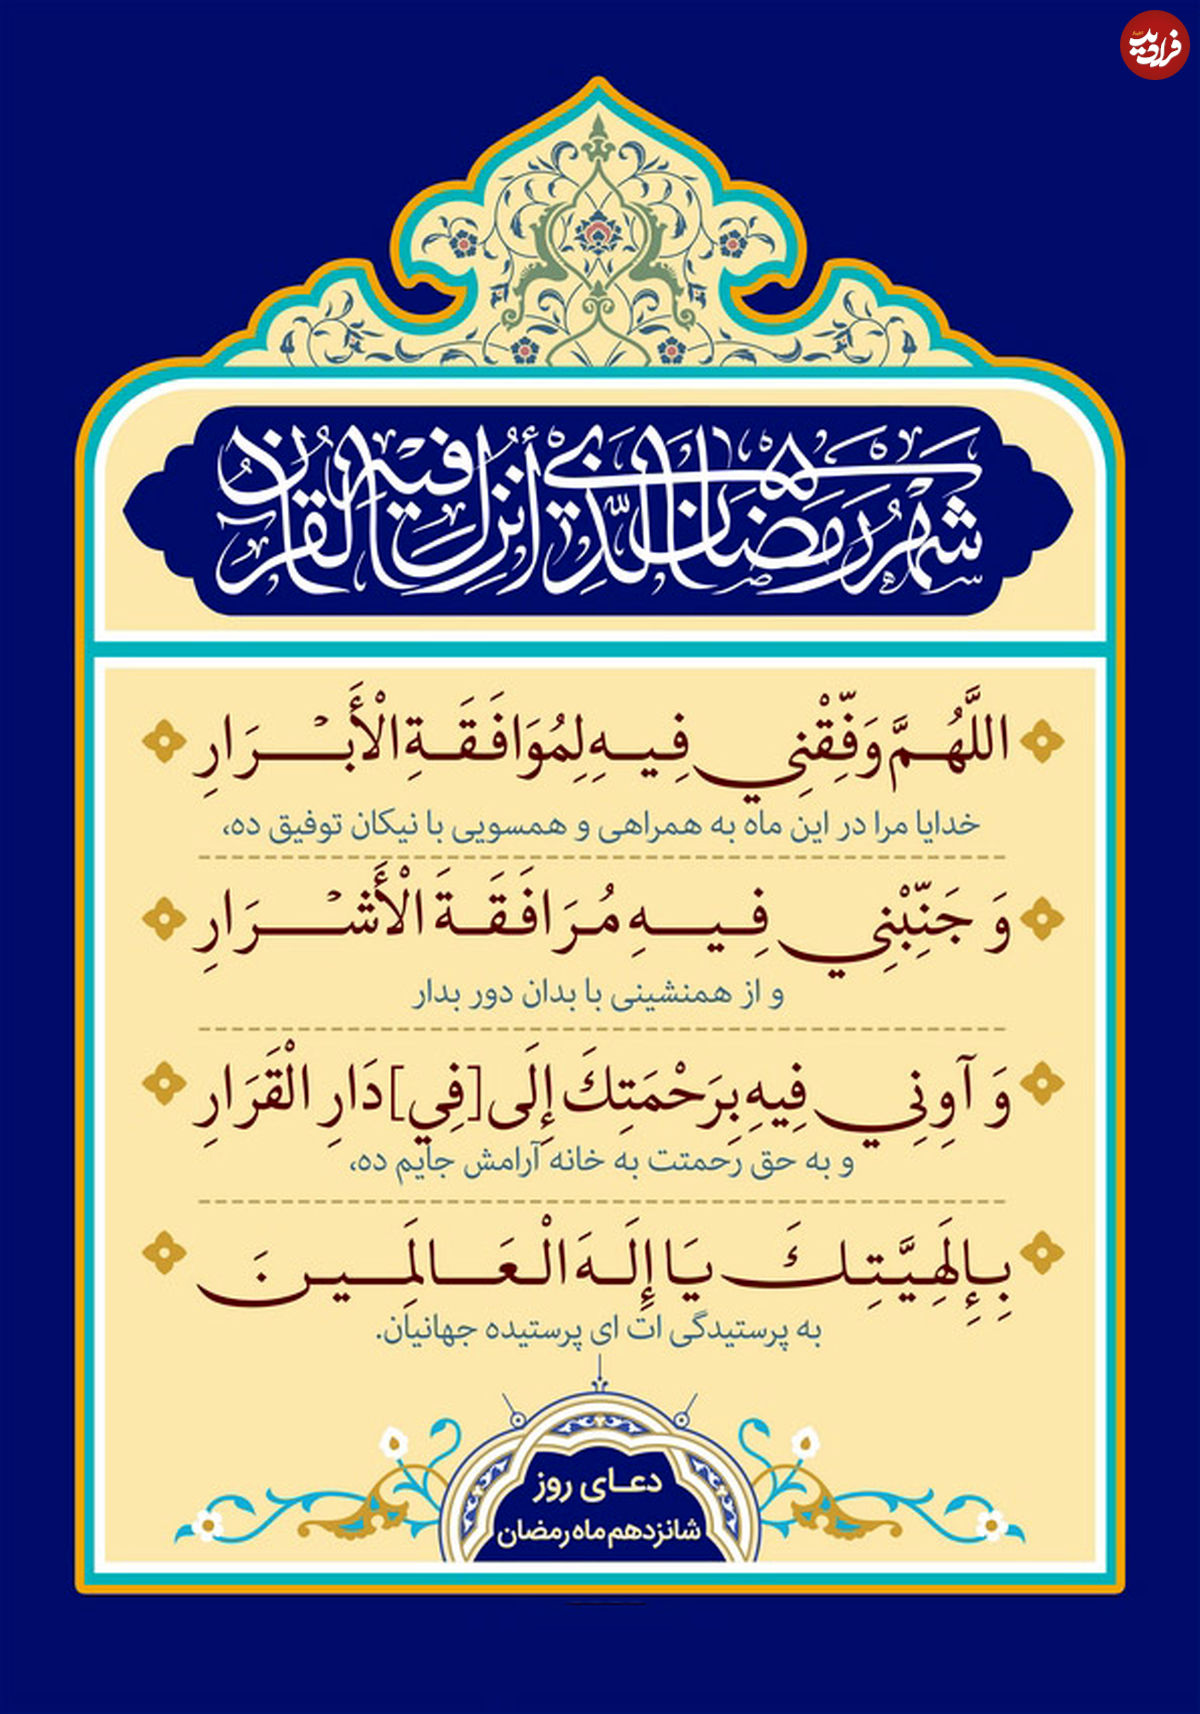 فرادید
شَهْرُ رَمَضَانَ الَّذِي أُنْزِلَ فِيهِ الْقُرْآنُ
اللَّهُمَّ وَفِّقْنِي فِيهِ لِمُوَافَقَةِ الْأَبْرَارِ
خدایا مرا در این ماه به همراهی و همسویی با نیکان توفیق ده،
وَ جَنِّبْنِي فِيهِ مُرَافَقَةَ الْأَشْرَارِ
و از همنشینی با بدان دور بدار
وَ آوِنِي فِيهِ بِرَحْمَتِكَ إِلَى [فِي] دَارِ الْقَرَارِ
و به حق رحمتت به خانه آرامش جایم ده،
بِإِلَهِيَّتِكَ يَا إِلَهَ الْعَالَمِينَ
به پرستیدگی ات ای پرستیده جهانیان.
دعای روز
شانزدهم ماه رمضان